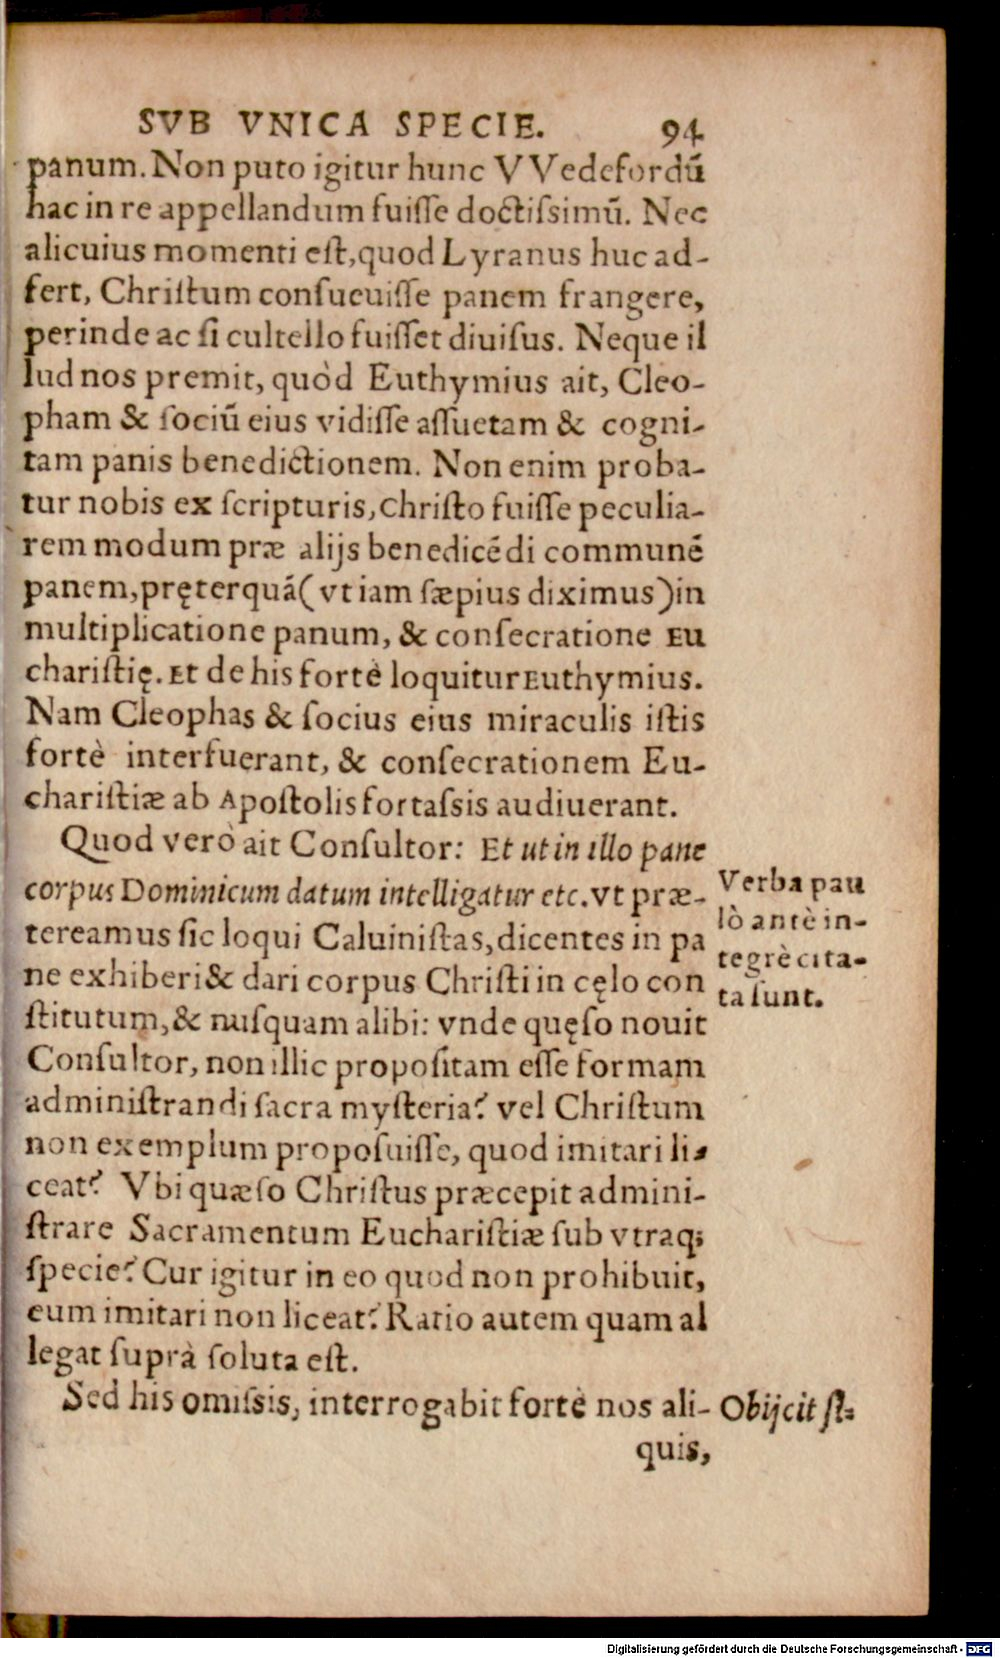 SVB VNICA SPECIE. 94
panum. Non puto igitur hunc VVedefordū
hac in re appellandum fuiſſe doctiſsimū. Nec
alicuius momenti eſt, quod Lyranus huc ad-
fert, Chriſtum conſueuiſſe panem frangere,
perinde ac ſi cultello fuiſſet diuiſus. Neque il
lud nos premit, quòd Euthymius ait, Cleo-
pham & ſociū eius vidiſſe aſſuetam & cogni-
tam panis benedictionem. Non enim proba-
tur nobis ex ſcripturis, Chriſto fuiſſe peculia-
rem modum præ alijs benedicēdi communē
panem, pręterquā (vt iam ſæpius diximus) in
multiplicatione panum, & conſecratione Eu
chariſtię. Et de his fortè loquitur Euthymius.
Nam Cleophas & ſocius eius miraculis iſtis
fortè interfuerant, & conſecrationem Eu-
chariſtiæ ab Apoſtolis fortaſsis audiuerant.
Quod verò ait Conſultor: Et ut in illo pane
corpus Dominicum datum intelligatur etc. vt præ-
tereamus ſic loqui Caluiniſtas, dicentes in pa
ne exhiberi & dari corpus Chriſti in cęlo con
ſtitutum, & nuſquam alibi: vnde quęſo nouit
Conſultor, non illic propoſitam eſſe formam
adminiſtrandi ſacra myſteria? vel Chriſtum
non exemplum propoſuiſſe, quod imitari li-
ceat? Vbi quæſo Chriſtus præcepit admini-
ſtrare Sacramentum Euchariſtiæ ſub vtraq;
ſpecie? Cur igitur in eo quod non prohibuit,
eum imitari non liceat? Ratio autem quam al
legat ſuprà ſoluta eſt.
Sed his omiſsis, interrogabit fortè nos ali-
quis,
Verba pau
lò antè in-
tegrè cita-
ta ſunt.
Obijcit ſi-
Digitalisierung gefördert durch die Deutsche Forschungsgemeinschaft - DFG